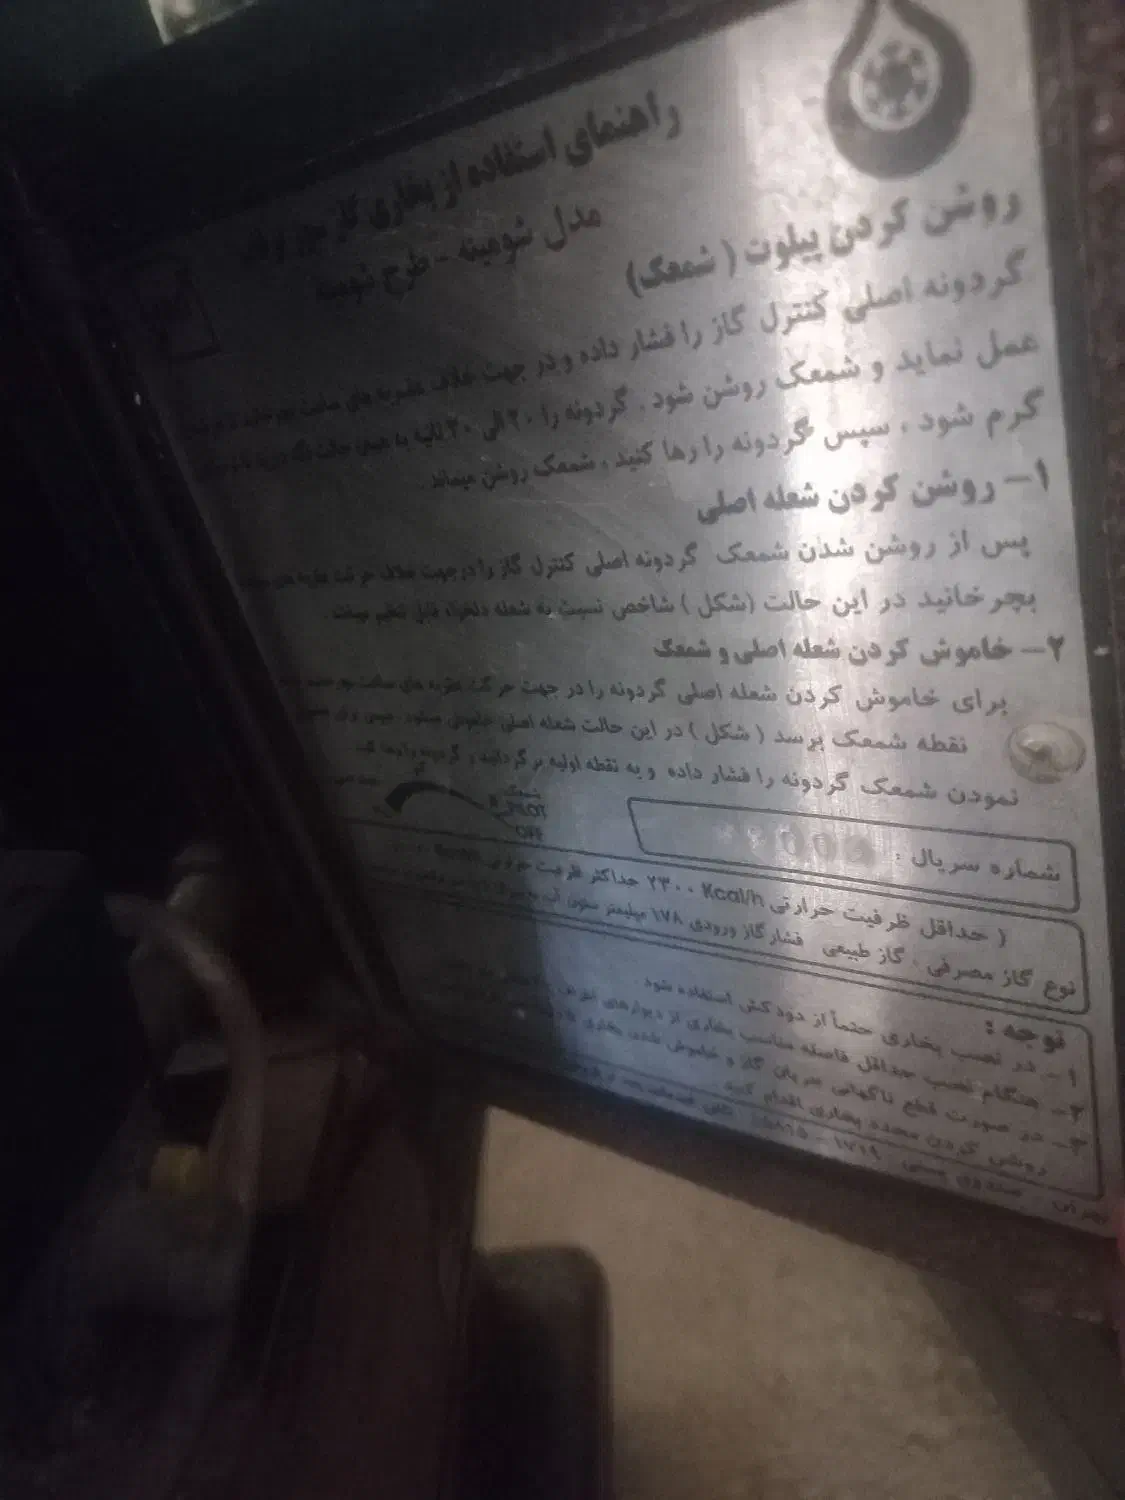 راهنمای استفاده از بخاری گاز سوز
مدل شومینه - طرح شومینه
روشن کردن پیلوت ( شمعک)
گردونه اصلی کنترل گاز را فشار داده و در جهت خلاف عقربه های ساعت
عمل نماید و شمعک روشن شود . گردونه را ۲۰ الی ۳۰ ثانیه به همین حالت نگه دارید
گرم شود ، سپس گردونه را رها کنید ، شمعک روشن میماند .
۱- روشن کردن شعله اصلی
پس از روشن شدن شمعک گردونه اصلی کنترل گاز را درجهت خلاف حرکت عقربه های
بچرخانید در این حالت (شکل ) شاخص نسبت به شعله دلخواه قابل تنظیم
۲- خاموش کردن شعله اصلی و شمعک
برای خاموش کردن شعله اصلی گردونه را در جهت حرکت عقربه های ساعت
نقطه شمعک برسد ( شکل ) در این حالت شعله اصلی خاموش میشود
نمودن شمعک گردونه را فشار داده و به نقطه اولیه برگردانید و گردونه را رها کنید
شمعک
PILOT
OFF
شماره سریال :
( حداقل ظرفیت حرارتی ۲۳۰۰ Kcal/h حداکثر ظرفیت حرارتی
نوع گاز مصرفی : گاز طبیعی فشار گاز ورودی ۱۷۸ میلیمتر ستون آب
توجه :
۱- در نصب بخاری حتماً از دودکش استفاده شود .
۲- هنگام نصب حداقل فاصله مناسب بخاری از دیوارهای
۳- در صورت قطع ناگهانی جریان گاز و خاموش شدن بخاری
روشن کردن مجدد بخاری اقدام کنید .
تهران - صندوق پستی